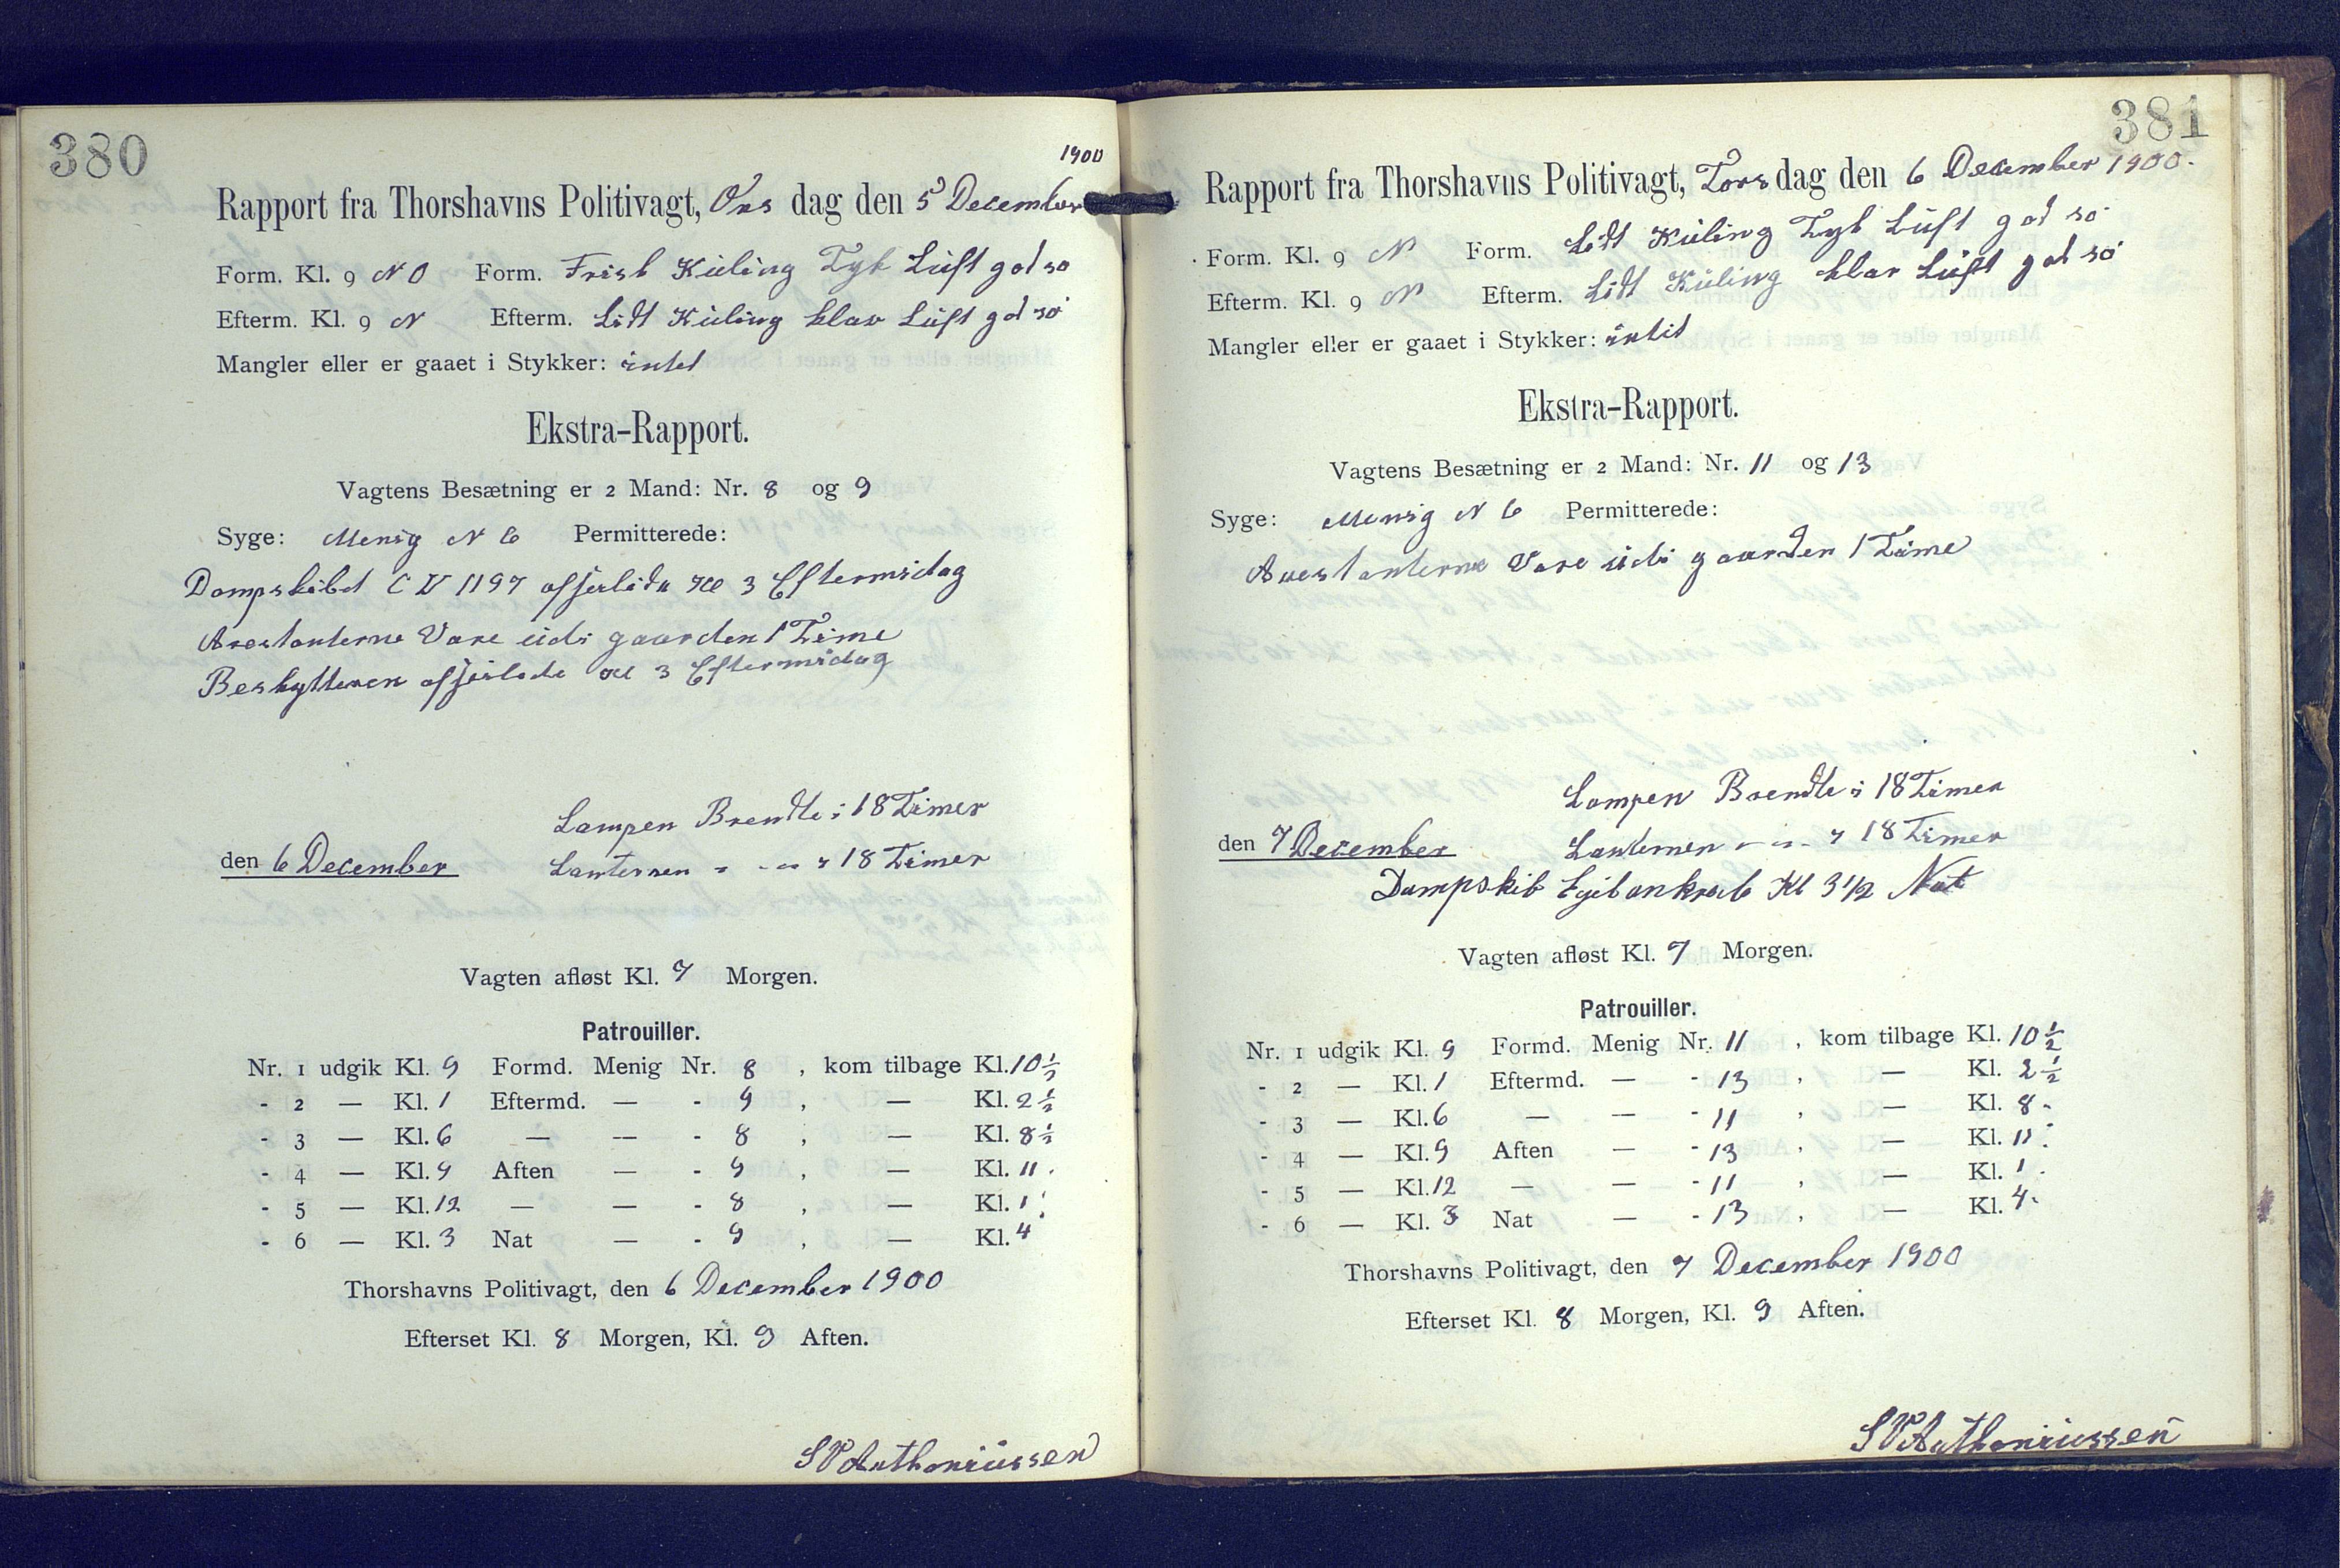 380
1900
Rapport fra Thorshavns Politivagt, Ons dag den 5 December
Form. Kl. 9 N O Form. Frisk Küling Tyk Lüft god sø
Efterm. Kl. 9 N Efterm. Lidt Küling klar Lüft god sø
Mangler eller er gaaet i Stykker: intet
Ekstra-Rapport.
Vagtens Besætning er 2 Mand: Nr. 8 og 9
Syge: Menig N 6 Permitterede:
Dampskibet C V 1197 afsejlede Kl 3 Eftermidag
Arestanterne Vare üdi gaarden 1 Time
Beskytteren afsejlede Kl 3 Eftermidag
Lampen Brendte i 18 Timer
den 6 December Lanternen - - - 18 Timer
Vagten afløst Kl. 7 Morgen.
Patrouiller.
Nr. 1 udgik Kl. 9 Formd. Menig Nr. 8 , kom tilbage Kl. 10 ½
- 2 — Kl. 1 Eftermd. — - 9 , — Kl. 2 ½
- 3 — Kl. 6 — — - 8 , — Kl. 8 ½
- 4 — Kl. 9 Aften — - 9 , — Kl. 11 .
- 5 — Kl. 12 — — - 8 , — Kl. 1 .
- 6 — Kl. 3 Nat — - 9 , — Kl. 4
Thorshavns Politivagt, den 6 December 1900
Efterset Kl. 8 Morgen, Kl. 9 Aften.
S P Anthoniüssen
381
Rapport fra Thorshavns Politivagt, Tors dag den 6 December 1900.
Form. Kl. 9 N Form. Lidt Küling Tyk Lüft god sø
Efterm. Kl. 9 N Efterm. Lidt Küling klar Lüft god sø
Mangler eller er gaaet i Stykker: intit
Ekstra-Rapport.
Vagtens Besætning er 2 Mand: Nr. 11 og 13
Syge: Menig N 6 Permitterede:
Arestanterne Vare üdi gaarden 1 Time
Lampen Brendte i 18 Timer
den 7 December Lanternen - - - 18 Timer
Dampskib Egil ankrab Kl 3 1/2 Nat
Vagten afløst Kl. 7 Morgen.
Patrouiller.
Nr. 1 udgik Kl. 9 Formd. Menig Nr. 11 , kom tilbage Kl. 10 ½
- 2 — Kl. 1 Eftermd. — - 13 , — Kl. 2 ½
- 3 — Kl. 6 — — - 11 , — Kl. 8 -
- 4 — Kl. 9 Aften — - 13 , — Kl. 11 .
- 5 — Kl. 12 — — - 11 , — Kl. 1 .
- 6 — Kl. 3 Nat — - 13 , — Kl. 4.
Thorshavns Politivagt, den 7 December 1900
Efterset Kl. 8 Morgen, Kl. 9 Aften.
S P Anthoniüssen